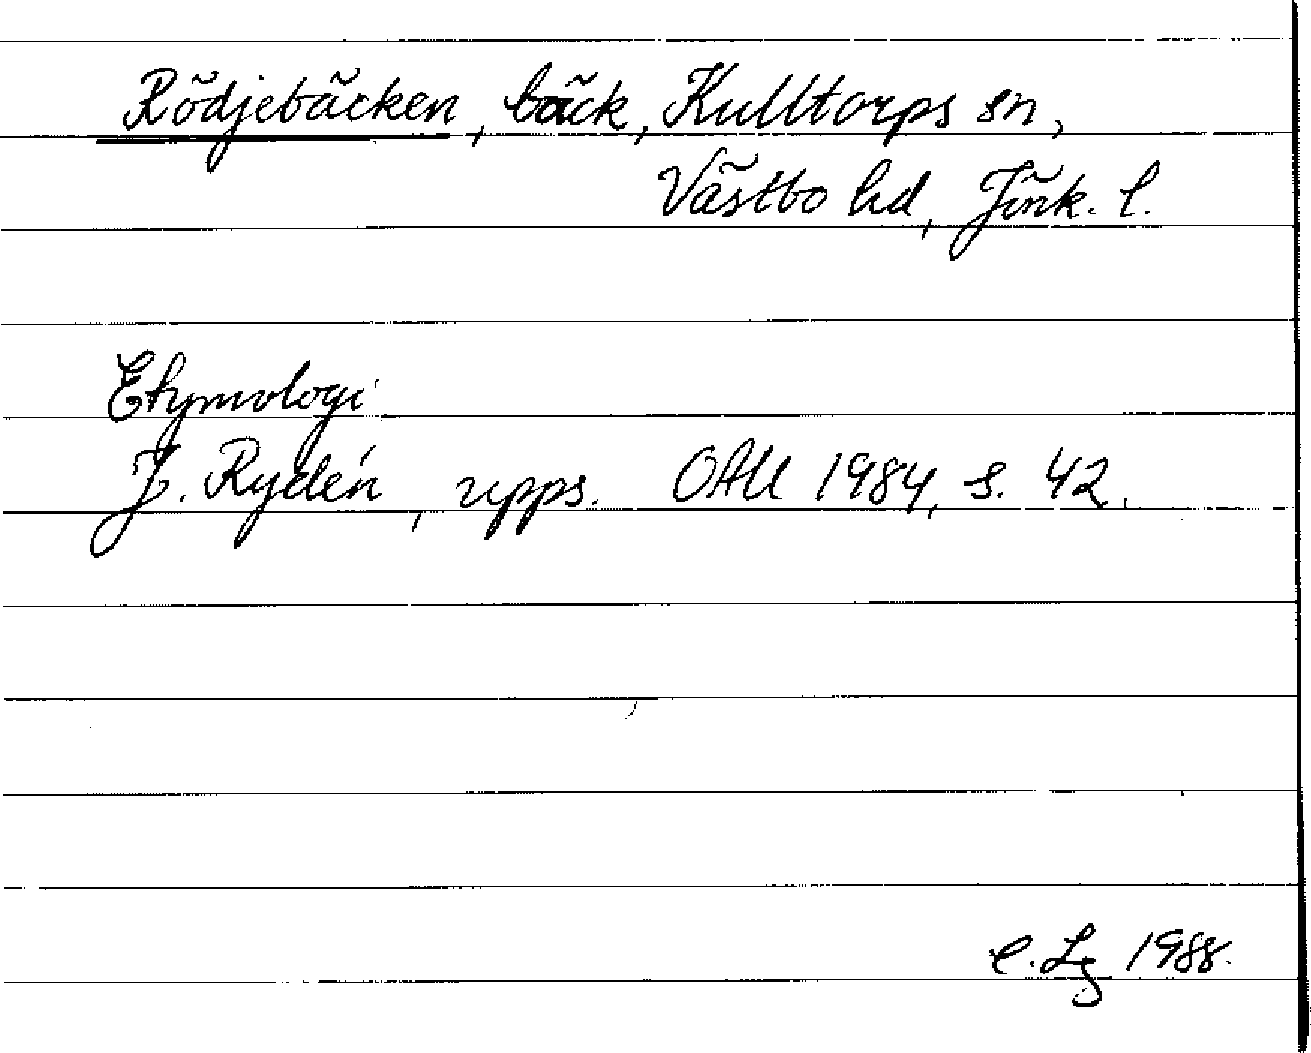 Rödjebäcken, bäck, Kulltorps sn,
Västbo hd, Jönk. l.
Etymologi
J. Rydén, upps. OAU 1984, s. 42.
C. Lg 1988.